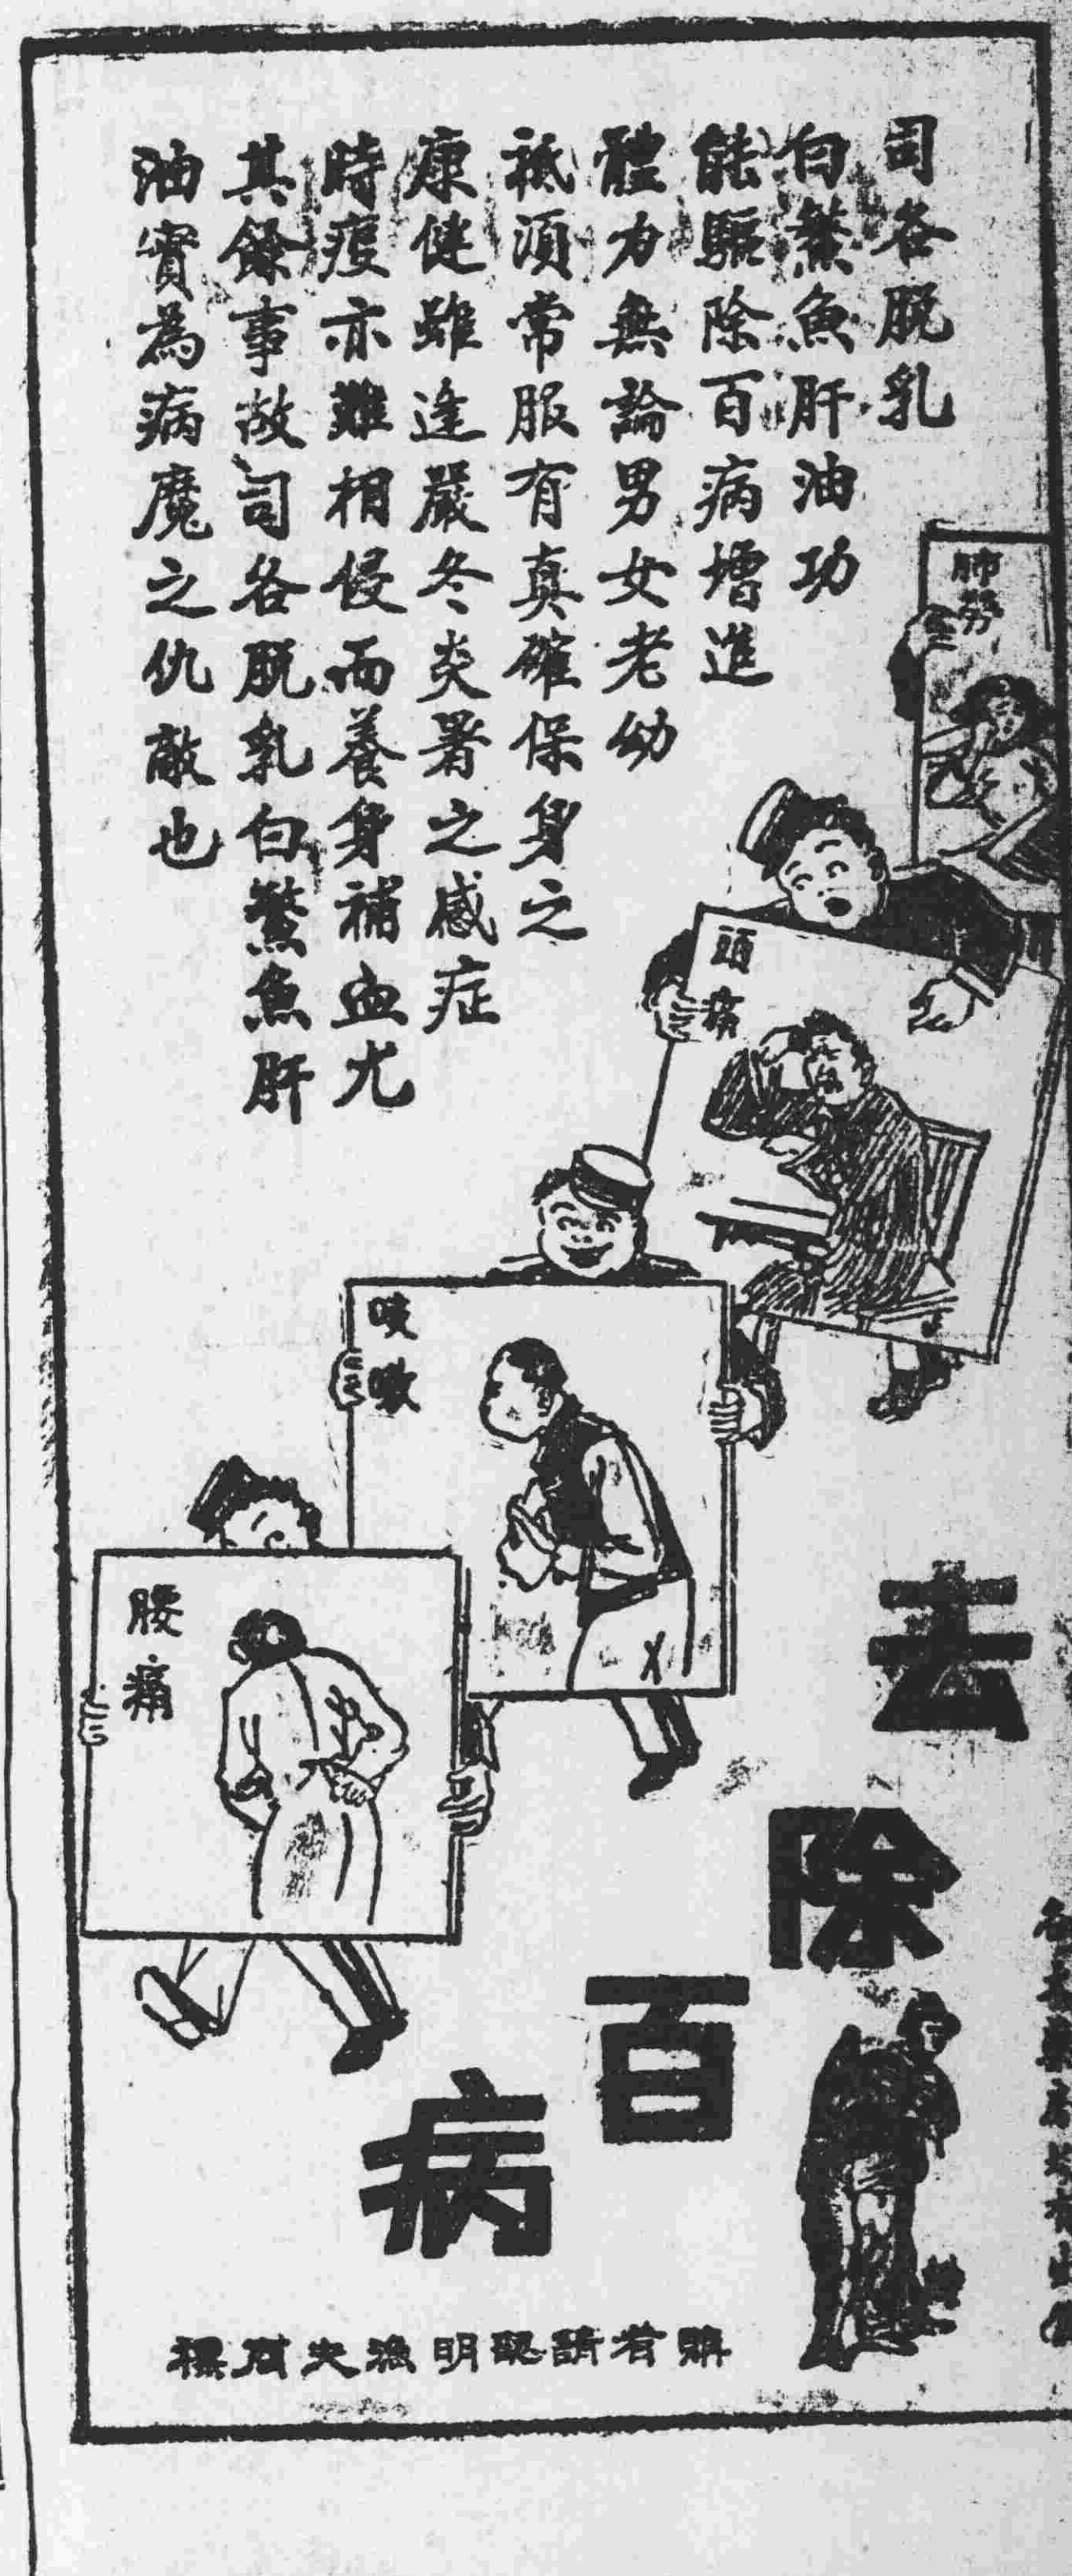 司各脱乳
白鰵魚肝油功
能驅除百病增進
體力無論男女老幼
祗須常服有真確保身之
康健雖逢嚴冬炎暑之感症
時疫亦難相侵而養身補血尤
其餘事故司各脱乳白鰵魚肝
油實為病魔之仇敵也
肺癆
頭痛
咳嗽
腰痛
去除百病
購者請認明漁夫商標